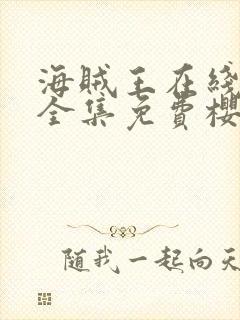 海贼王在线
全集免費櫻
随我一起向天